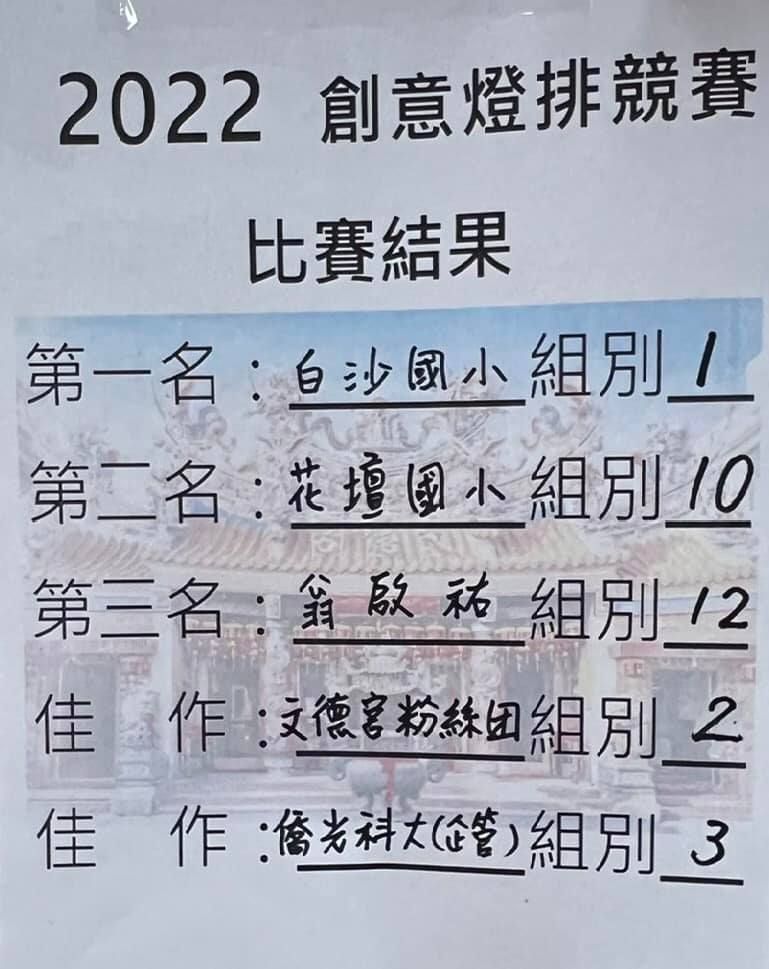 2022 創意燈排競賽
比賽結果
第一名：白沙國小組別1
第二名：花壇國小組別10
第三名：翁啟祐組別12
佳 作：文德宮粉絲团組別2
佳 作：僑光科大(企管)組別3